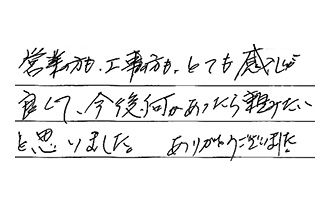 営業の方も、工事の方も、とても感じが
良くて、今後、何かあったら頼みたい
と思いました。 ありがとうございました